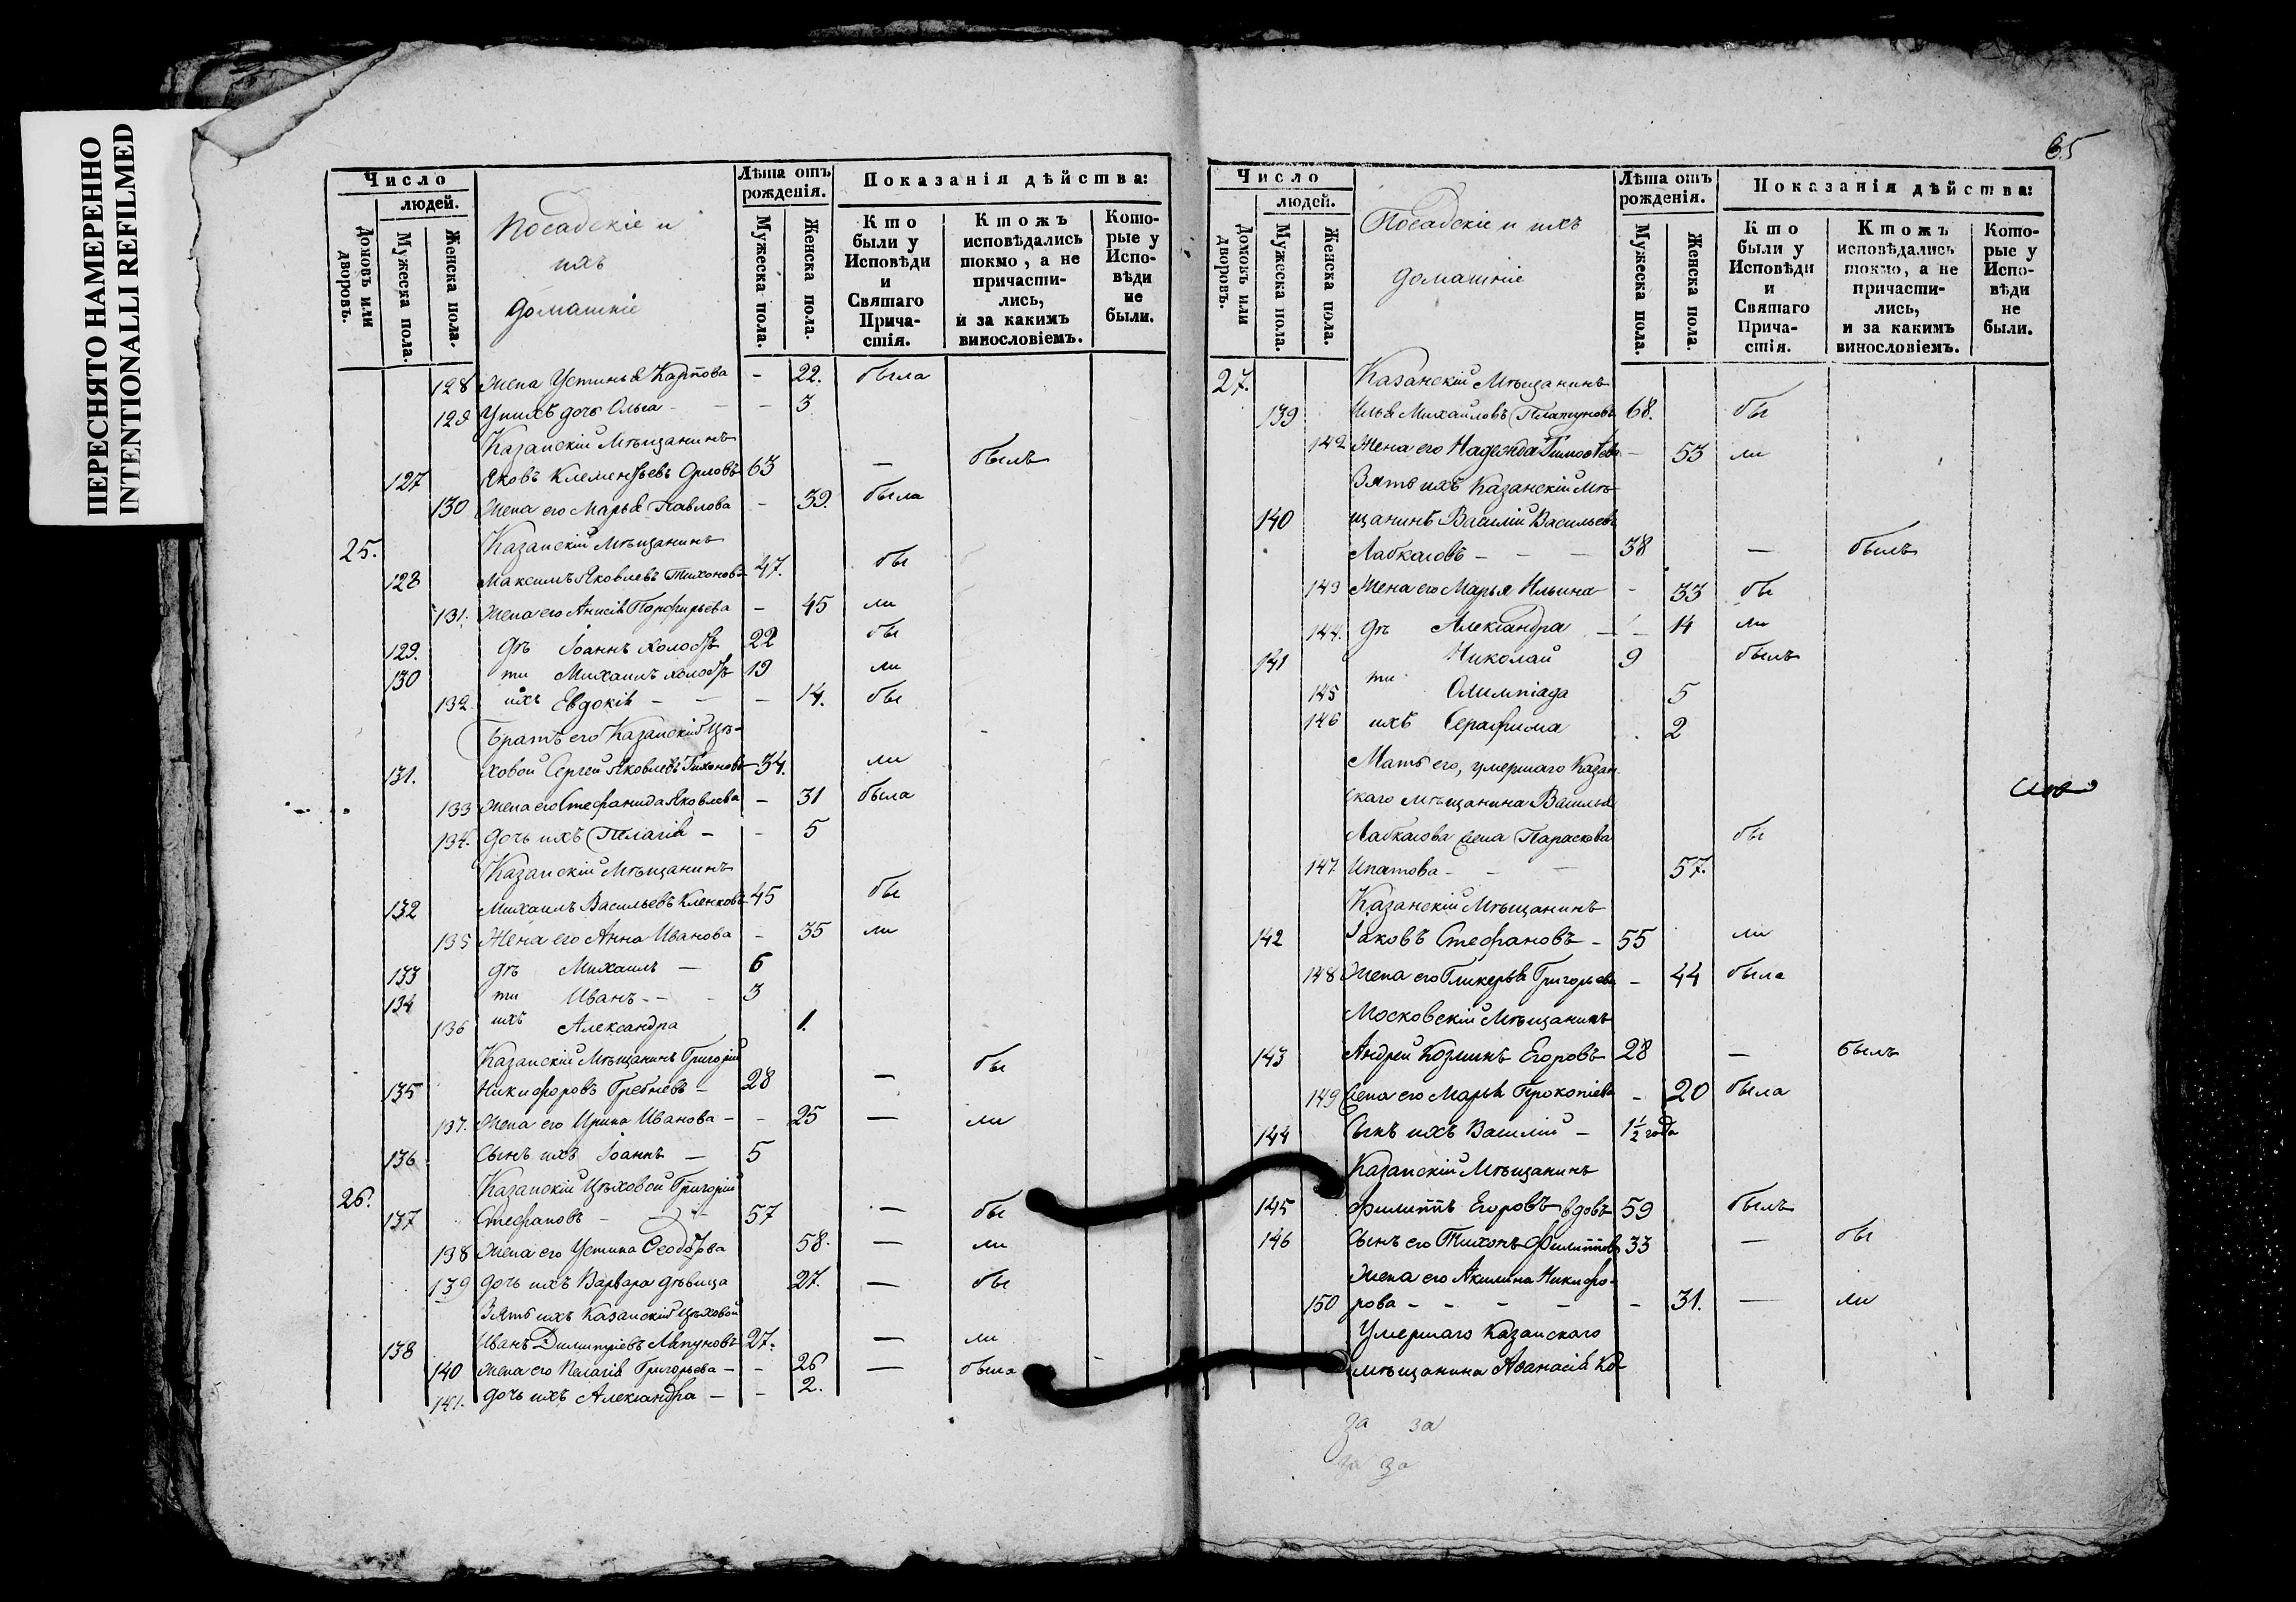 ПЕРЕСНЯТО НАМЕРЕННО
INTENTIONALLI REFILMED
Число
людей.
Домовъ или дворовъ.
Мужеска пола.
Женска пола.
Посадскіе и
ихъ
домашніе
Лѣта отъ рожденія.
Мужеска пола.
Женска пола.
Показанія дѣйства:
Кто были у Исповѣди и Святаго Прича-стія.
Ктожъ исповѣдались токмо, а не причасти-лись, и за какимъ винословіемъ.
Кото-рые у Испо-вѣди не были.
128 жена Устинья Карпова - 22. была
129 У нихъ дочь Ольга - - - 3
Казанскій Мѣщанинъ
127 Яковъ Клементьевъ Орловъ 63 — былъ
130 Жена его Марья Павлова - 39. была
25. Казанскій Мѣщанинъ
128 Максимъ Яковлевъ Тихоновъ 47. бы
131. Жена его Анисія Порфирьева - 45 ли
129. дѣ Іоаннъ холостъ 22 бы
130 ти Михаилъ холостъ 19 ли
132 ихъ Евдокія - - - 14. бы
Братъ его Казанскій Цѣ-
131. ховой Сергей Яковлевъ Тихоновъ 34. ли
133 жена его Стефанида Яковлева - 31 была
134. дочь ихъ Пелагія - - 5
Казанскій Мѣщанинъ
132 Михаилъ Васильевъ Кленковъ 45 бы
135 Жена его Анна Иванова - 35 ли
133 дѣ Михаилъ — 6
134 ти Иванъ - - - 3
136 ихъ Александра 1.
Казанскій Мѣщанинъ Григорій
135 Никифоровъ Гребневъ - 28 — бы
137. жена его Ирина Иванова - - 25 — ли
136 Сынъ ихъ Іоаннъ — 5
26. Казанскій Цѣховой Григорій
137 Стефановъ - - - 57 — бы
138 жена его Устина Ѳеодорова 58. — ли
139 дочь ихъ Варвара дѣвица 27. — бы
Зять ихъ Казанскій Цѣховой
138 Иванъ Димитріевъ Ляпуновъ 27. — ли
140 жена его Пелагія Григорьева - - 26 — была
141. дочь ихъ Александра - - 2.
65
Число
людей.
Домовъ или дворовъ.
Мужеска пола.
Женска пола.
Посадскіе и ихъ
домашніе
Лѣта отъ рожденія.
Мужеска пола.
Женска пола.
Показанія дѣйства:
Кто были у Исповѣди и Святаго Прича-стія.
Ктожъ исповѣдались токмо, а не причасти-лись, и за какимъ винословіемъ.
Кото-рые у Испо-вѣди не были.
27. Казанскій Мѣщанинъ
139 Илья Михайловъ Платуновъ 68. бы
142 Жена его Надежда Тимоѳеева - 53 ли
Зять ихъ Казанскій Мѣ-
140 щанинъ Василій Васильевъ
Лабкаговъ - - - 38 — былъ
143 Жена его Марья Ильина - 33 бы
144. дѣ Александра - - 14 ли
141 Николай 9 былъ
145 ти Олимпіада 5
146 ихъ Серафима 2
Мать его, умершаго Казан-
скаго мѣщанина Василья
Лабкагова жена Параскова бы
147 Ипатова - - - 57.
Казанскій Мѣщанинъ
142 Іаковъ Стефановъ - 55 ли
148 жена его Гликерья Григорьева - 44 была
Московскій Мѣщанинъ
143 Андрей Козминъ Егоровъ 28 — былъ
149 жена его Марья Прокопіева - 20 была
144 Сынъ ихъ Василій - 1½ года
Казанскій Мѣщанинъ
145 Филиппъ Егоровъ вдовъ 59 былъ
146 Сынъ его Тихонъ Филипповъ 33 — бы
жена его Акилина Никифо-
150 рова - - - - - 31. — ли
Умершаго Казанскаго
мѣщанина Аѳанасія Ко-
за за
за за